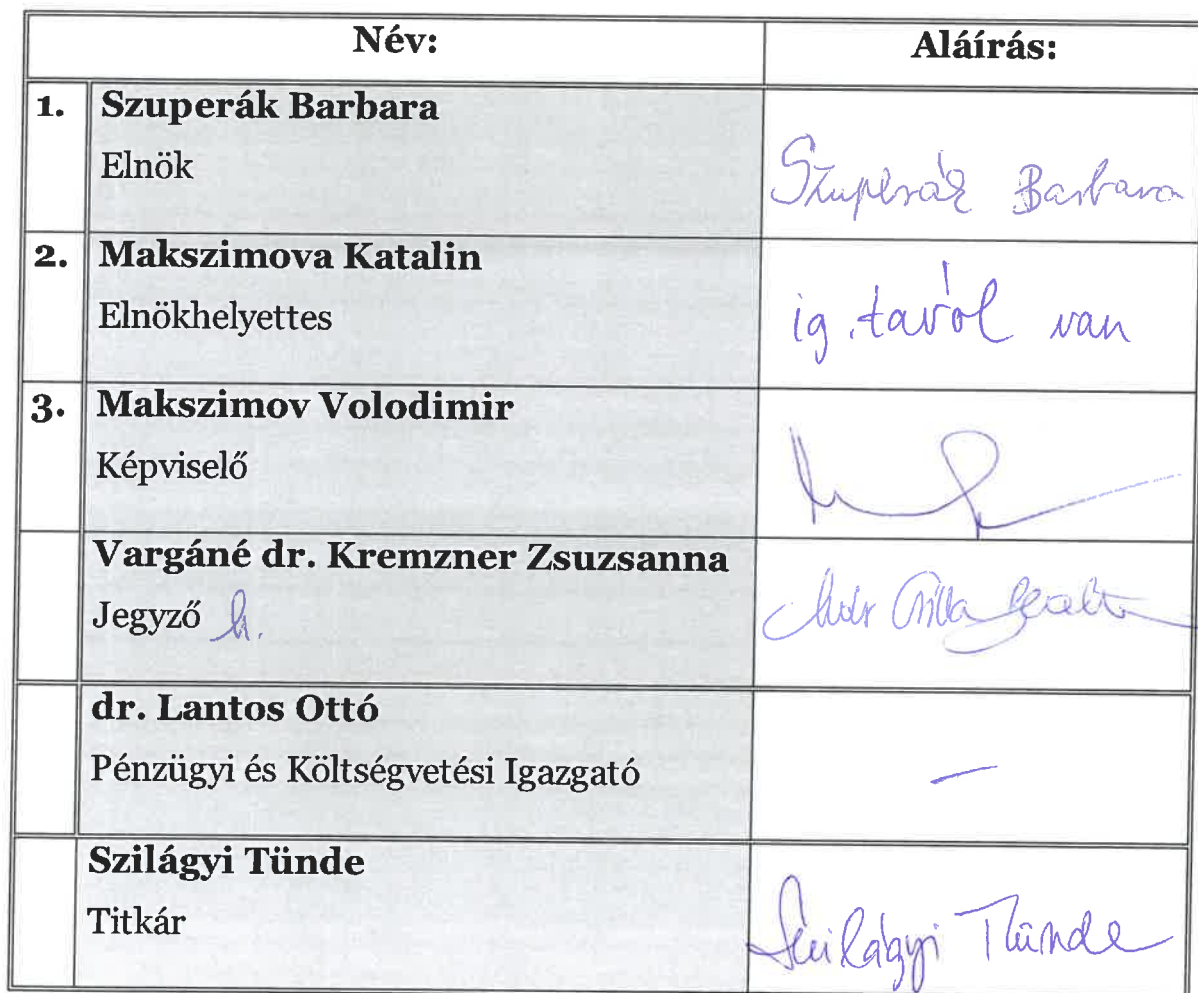 Név: Aláírás:
1. Szuperák Barbara
Elnök
Szuperák Barbara
2. Makszimova Katalin
Elnökhelyettes
ig. távol van
3. Makszimov Volodimir
Képviselő
Vargáné dr. Kremzner Zsuzsanna
Jegyző h.
dr. Lantos Ottó
Pénzügyi és Költségvetési Igazgató
—
Szilágyi Tünde
Titkár
Szilágyi Tünde